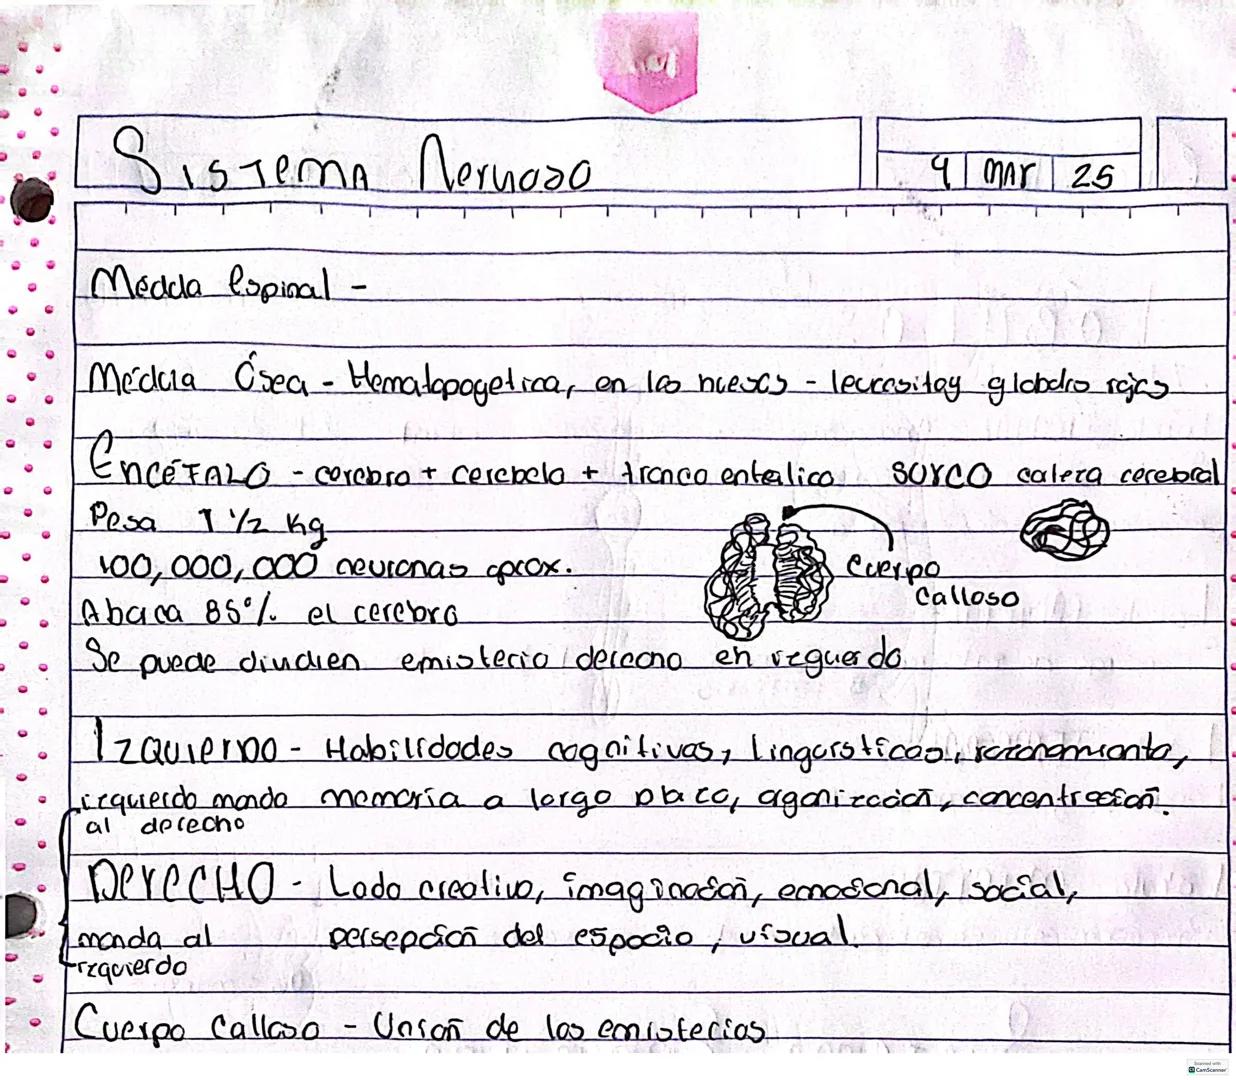 Sistema Nervoso
9 | mar | 25
Médula Espinal -
Médula Ósea - Hematopoyetica, en los huesos - leucositoy globulos rojos
ENCÉFALO - cerebro + cerebelo + tronco enfalico SURCO calera cerebral
Pesa 1 1/2 kg
100,000,000 neuronas aprox.
Abaca 85% el cerebro
Cuerpo
Calloso
Se puede dividien emisferio derecho en izguerdo
IZQUIERDO - Habilidades cognitivas, linguisticas, razonamianto,
izquierdo manda memoria a largo plazo, aganización, concentración.
al derecho
DERECHO - Lado creativo, imaginación, emocional, social,
manda al persepción del espacio, visual.
izquierdo
Cuerpo Calloso - Unión de los emisferios
Scanned with
CamScanner